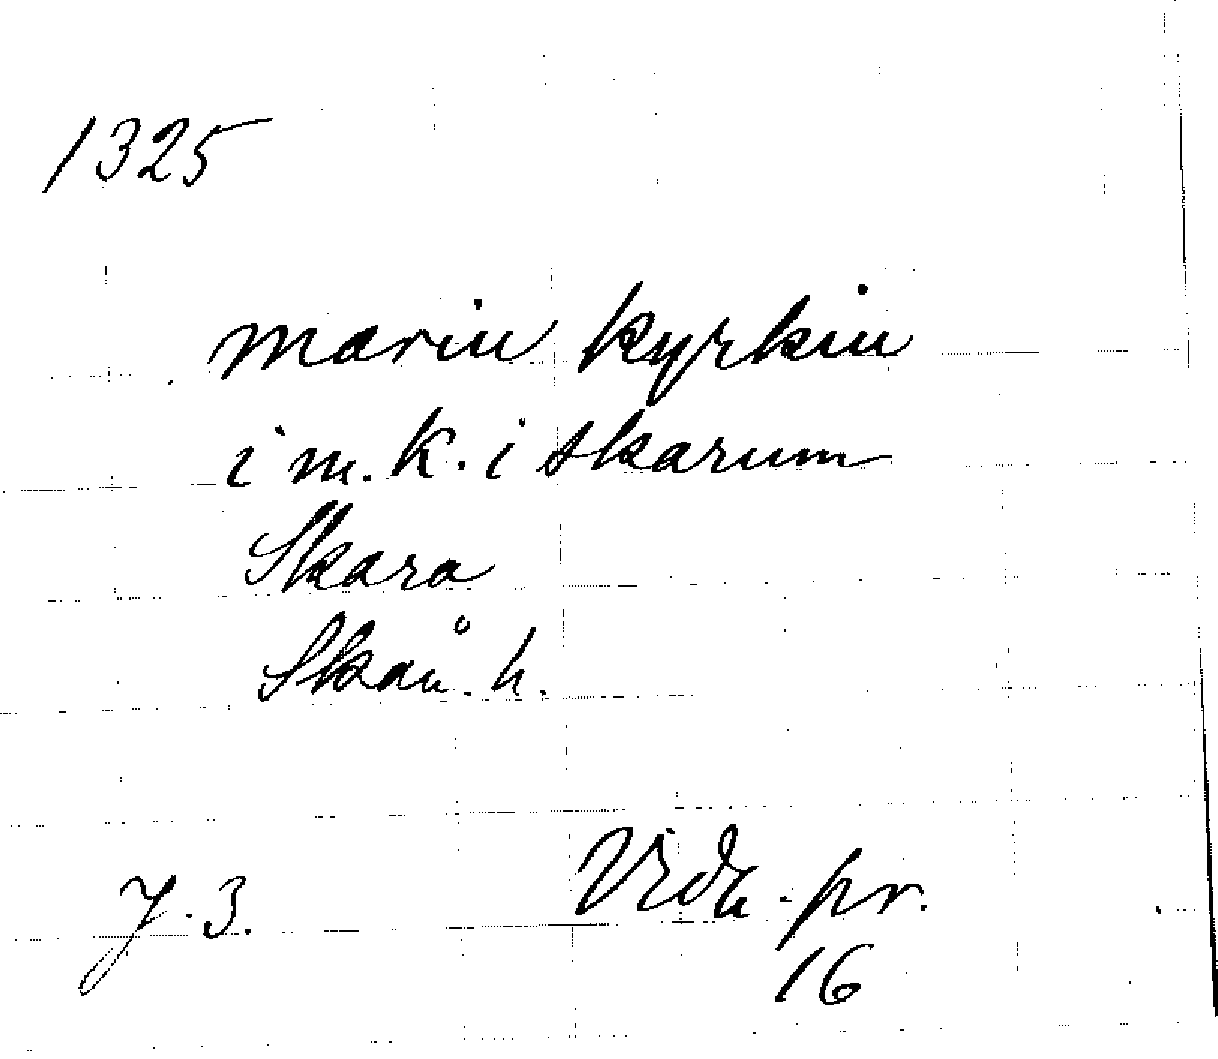 1325
mariu kyrkiu
i m. k. i skarum
Skara
Skån. h.
J. 3. Vidh. pr.
16